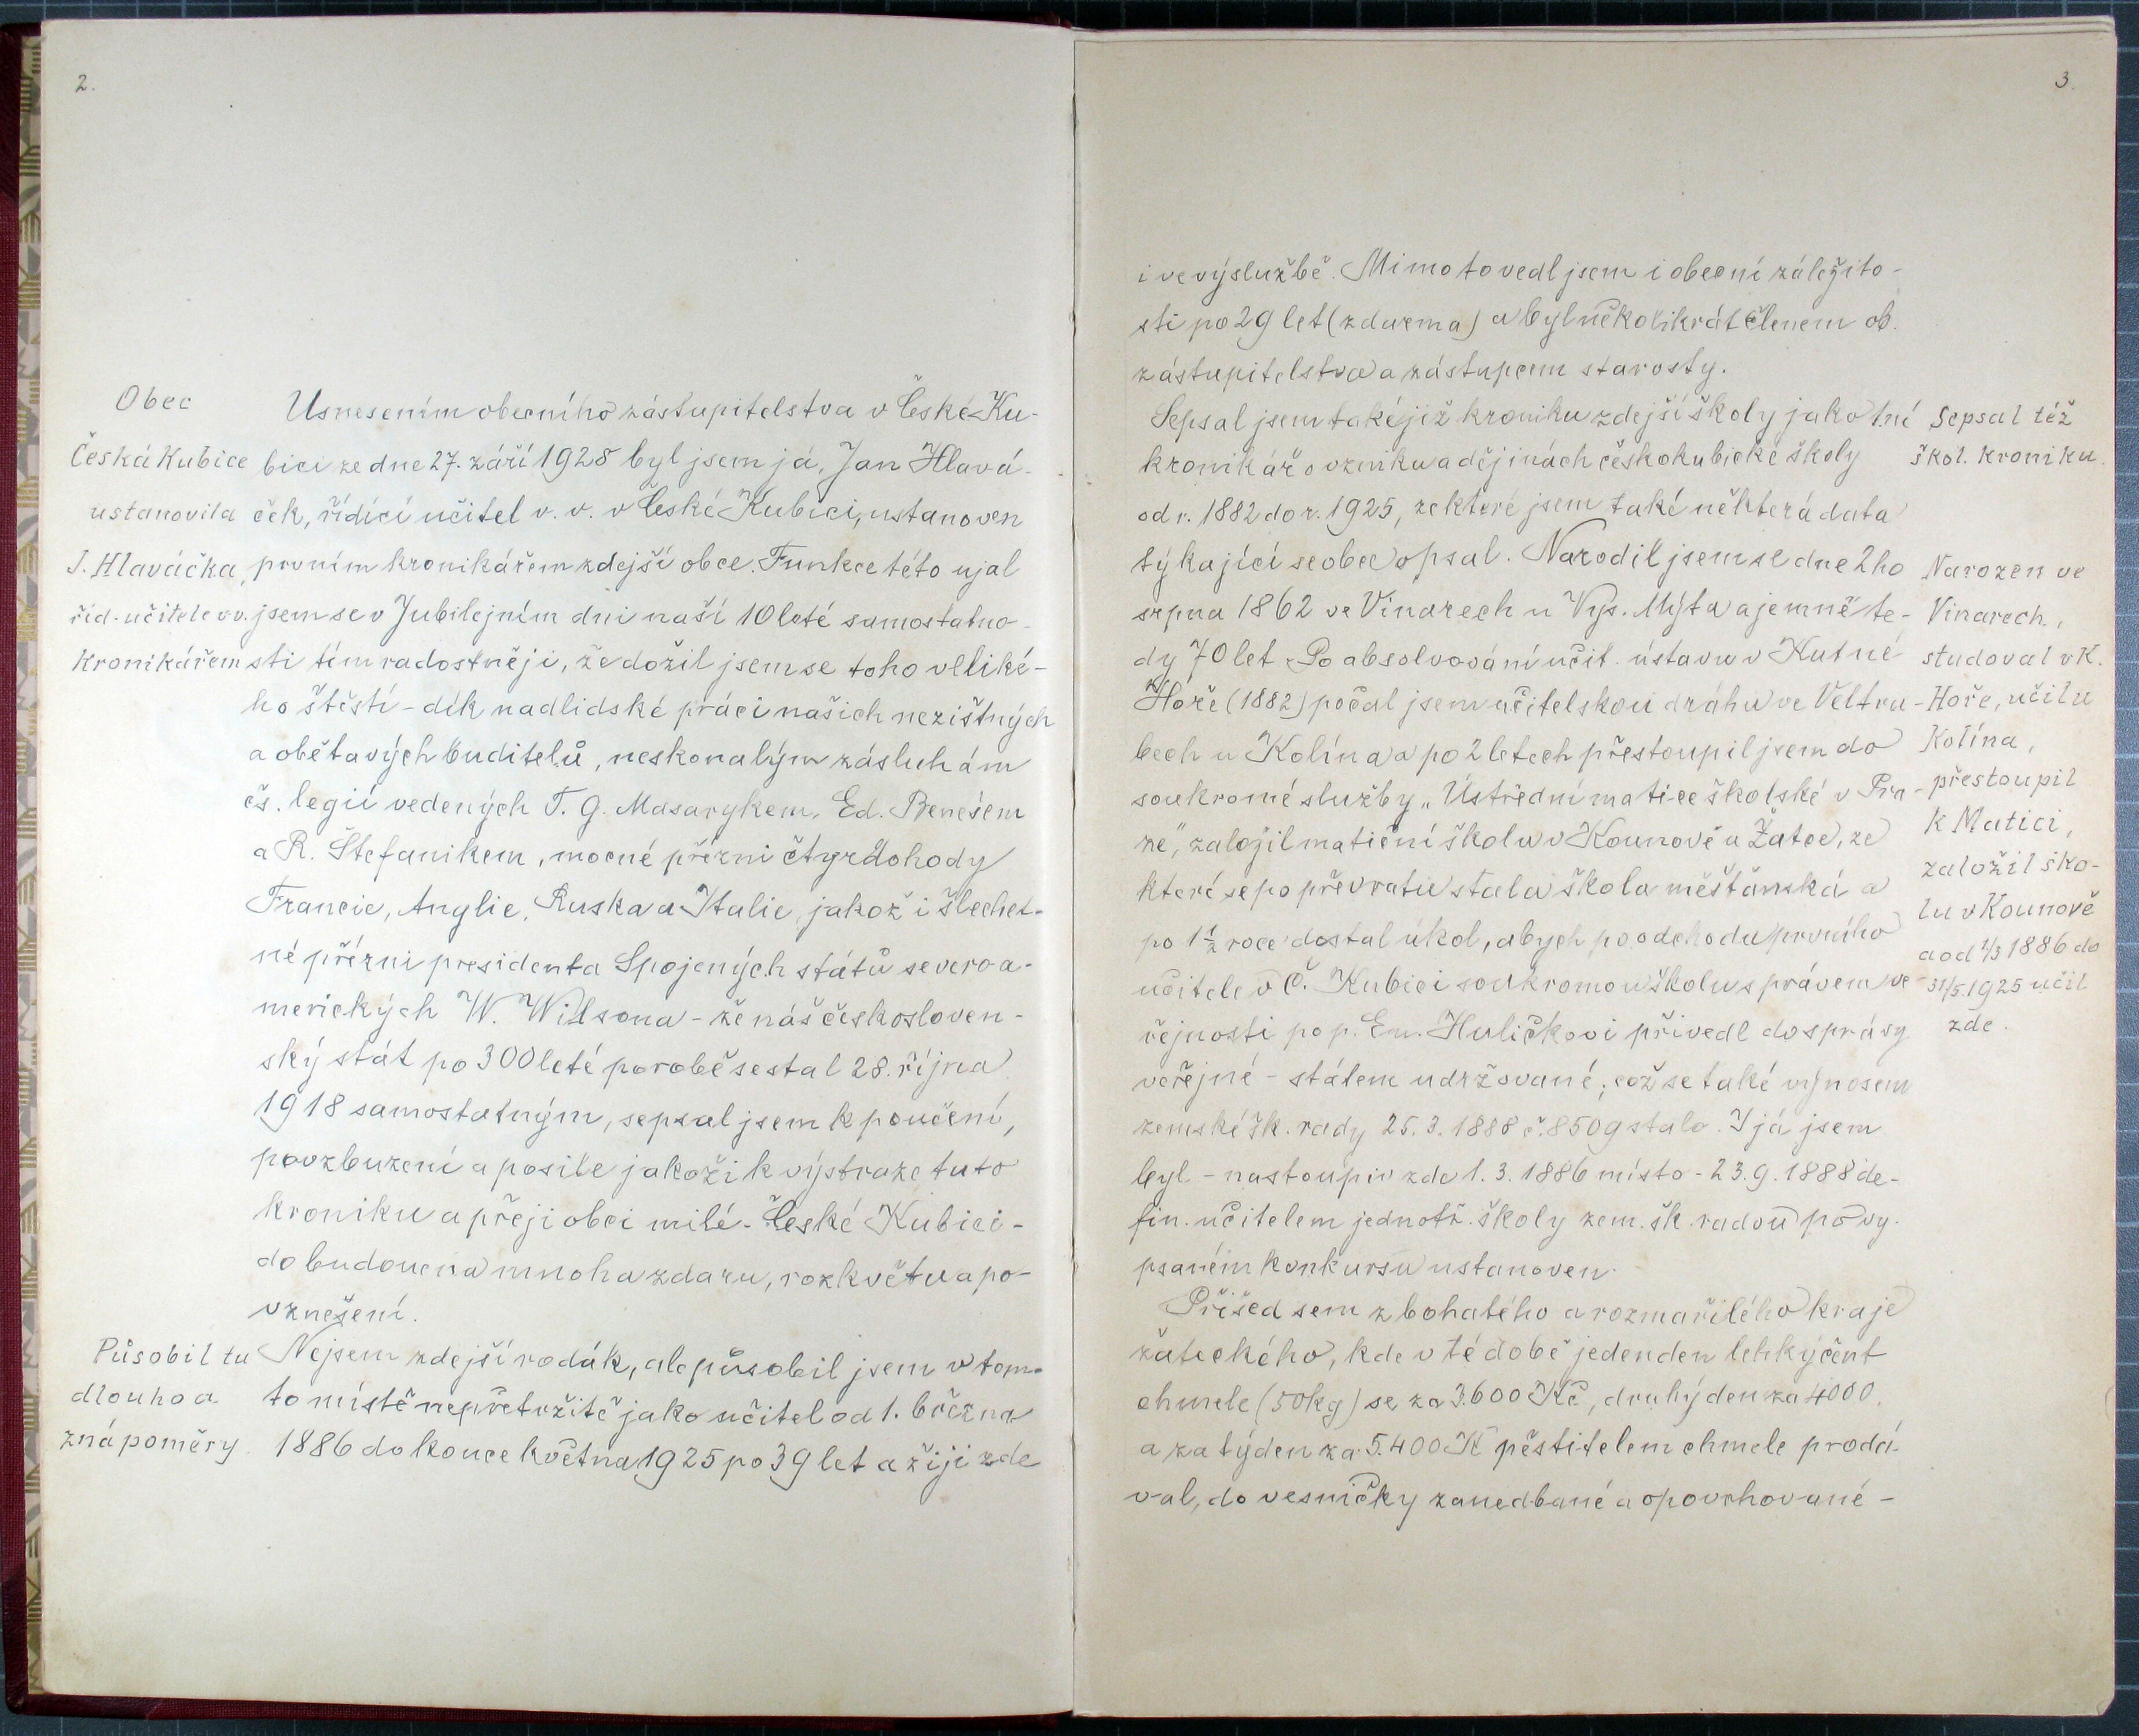 2.
Obec
Česká Kubice
ustanovila
J. Hlaváčka,
říd. učitele vv.
Kronikářem
Usnesením obecního zástupitelstva v České Ku-
bici ze dne 27. září 1928 byl jsem já, Jan Hlavá-
ček, řídící učitel v. v. v České Kubici, ustanoven
prvním kronikářem zdejší obce. Funkce této ujal
jsem se v Jubilejním dni naší 10 leté samostatno-
sti tím radostněji, že dožil jsem se toho veliké-
ho štěstí - dík nadlidské práci našich nezištných
a obětavých buditelů, neskonalým zásluhám
čs. legií vedených T. G. Masarykem, Ed. Benešem
a R. Štefanikem, mocné přízni čtyrdohody
Francie, Anglie, Ruska a Italie, jakož i šlechet-
né přízni presidenta Spojených států severoa-
merických W. Wilsona - že náš českosloven-
ský stát po 300 leté porobě se stal 28. října
1918 samostatným, sepsal jsem k poučení,
povzbuzení a posile jakož i k výstraze tuto
kroniku a přeji obci milé - České Kubici -
do budoucna mnoha zdaru, rozkvětu a po-
vznešení.
Působil tu
dlouho a
zná poměry.
Nejsem zdejší rodák, ale působil jsem v tom-
to místě nepřetržitě jako učitel od 1. března
1886 do konce května 1925 po 39 let a žiji zde
3.
i ve výslužbě. Mimo to vedl jsem i obecní záležito-
sti po 29 let (zdarma) a byl několikrát členem ob.
zástupitelstva a zástupcem starosty.
Sepsal jsem také již kroniku zdejší školy jako 1.ní
kronikář o vzniku a dějinách českokubické školy
od r. 1882 do r. 1925, ze které jsem také některá data
týkající se obce opsal. Narodil jsem se dne 2ho
srpna 1862 ve Vinarech u Vys. Mýta a je mně te-
dy 70 let. Po absolvování učit. ústavu v Kutné
Hoře (1882) počal jsem učitelskou dráhu ve Veltru-
bech u Kolína a po 2 letech přestoupil jsem do
soukromé služby „Ústřední matice školské v Pra-
ze", založil matiční školu v Kounově u Žatce, ze
které se po převratu stala škola měšťanská a
po 1½ roce dostal úkol, abych po odchodu prvního
učitele v Č. Kubici soukromou školu s právem ve-
řejnosti po p. Em. Huličkovi přivedl do správy
veřejné - státem udržované; což se také výnosem
zemské šk. rady 25. 3. 1888 č. 8509 stalo. I já jsem
byl - nastoupiv zde 1. 3. 1886 místo - 23. 9. 1888 de-
fin. učitelem jednotř. školy zem. šk. radou po vy-
psaném konkursu ustanoven.
Přišed sem z bohatého a rozmařilého kraje
žateckého, kde v té době jeden den lehký cent
chmele (50kg) se za 3.600 Kč, druhý den za 4000,
a za týden za 5.400 K pěstitelem chmele prodá-
val, do vesničky zanedbané a opovrhované -
Sepsal též
škol. kroniku.
Narozen ve
Vinarech,
studoval v K.
Hoře, učil u
Kolína,
přestoupil
k Matici,
založil ško-
lu v Kounově
a od 1/3 1886 do
31/5.1925 učil
zde.